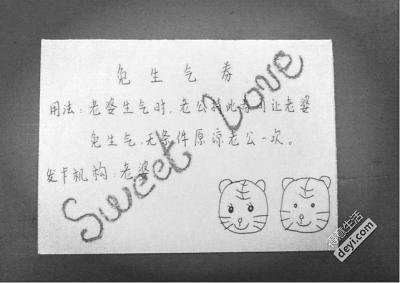 免生气券
用法:老婆生气时,老公持此券可让老婆
免生气,无条件原谅老公一次。
发卡机构:老婆
Sweet Love
得意生活
deyi.com